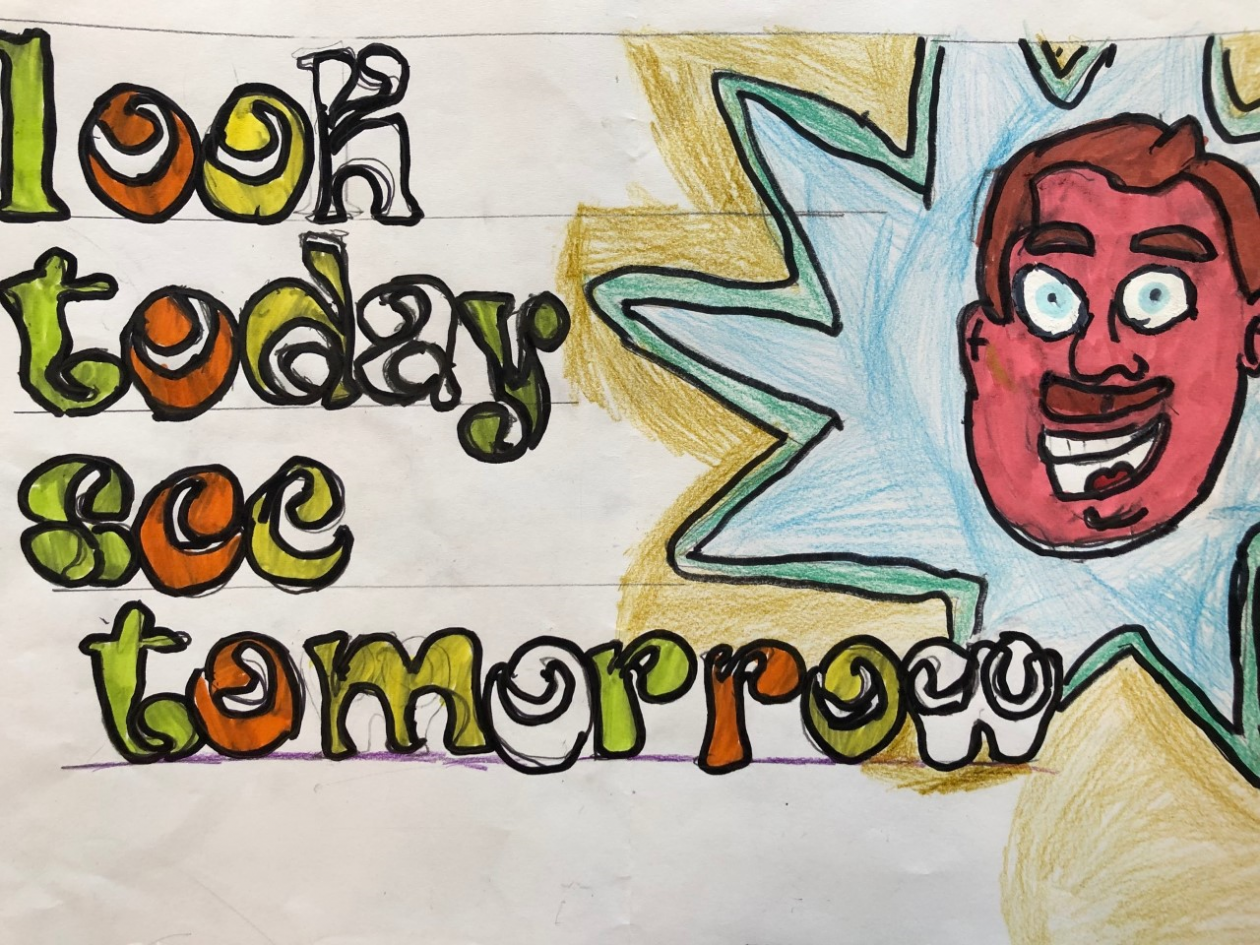 look
today
see
tomorrow